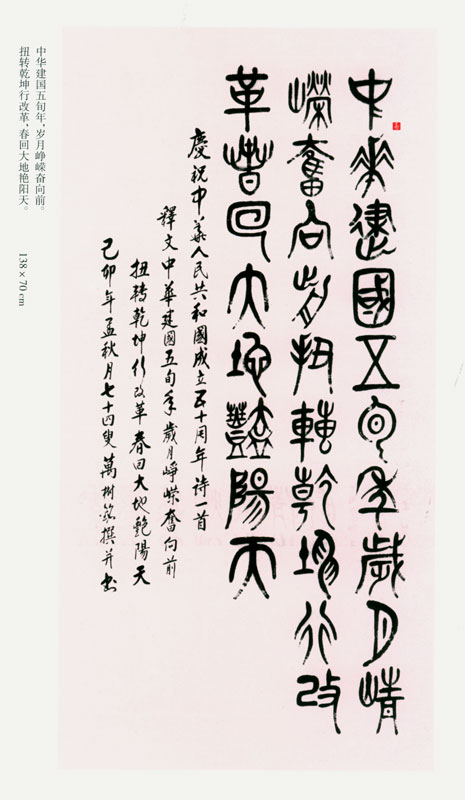 中華建國五旬年歲月崢
嶸奮向前扭轉乾坤行改
革春回大地豔陽天
慶祝中華人民共和國成立五十周年诗一首
釋文中華建國五旬年歲月崢嶸奮向前
扭轉乾坤行改革春回大地艷陽天
己卯年孟秋月七十四叟萬樹撰并书
中华建国五旬年，岁月峥嵘奋向前。
扭转乾坤行改革，春回大地艳阳天。 138×70 cm